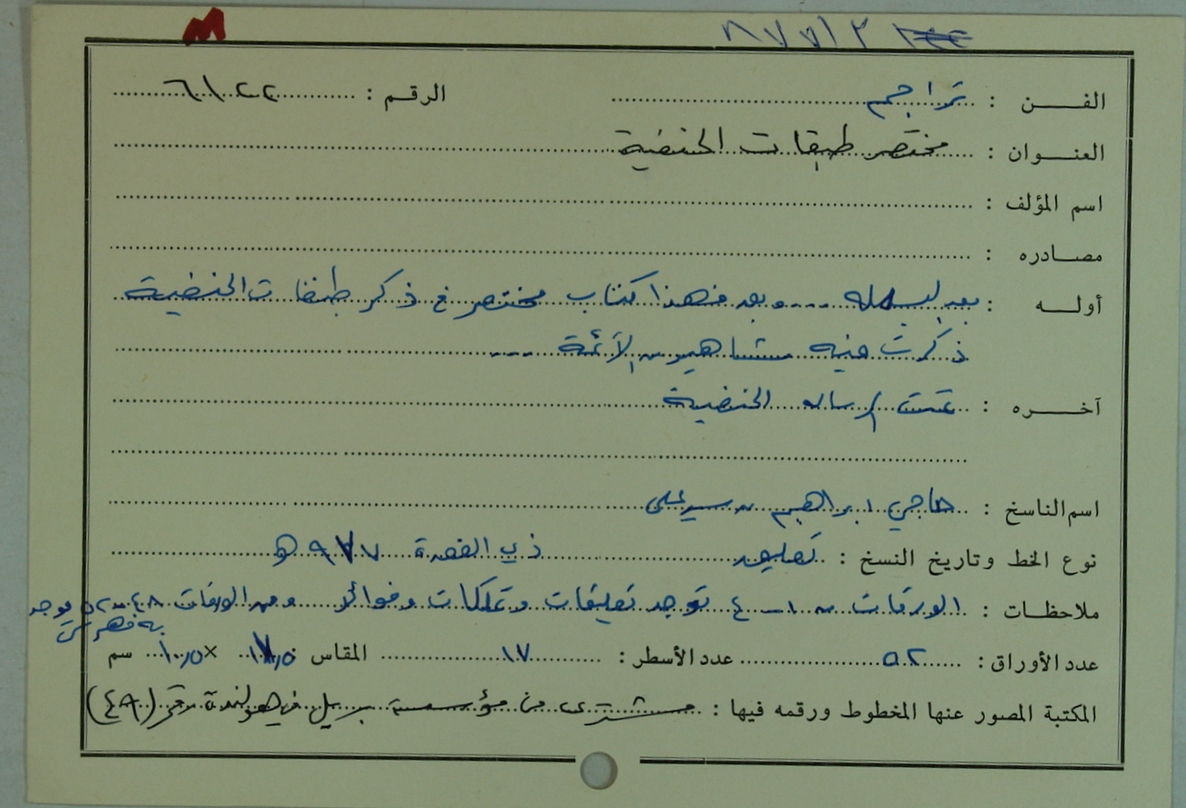 الفن : تراجم الرقم : ٦١٢٢
العنوان : مختصر طبقات الحنفية
اسم المؤلف :
مصادره :
أوله : بعد البسمله ... وبعد فهذا كتاب مختصر في ذكر طبقات الحنفية
ذكرت فيه مشاهير الأئمة ...
آخره : تمت الرساله الحنفية
اسم الناسخ : حاجي ابراهيم بن سيد علي
نوع الخط وتاريخ النسخ : تعليق ذي القعدة ٩٧٧ هـ
ملاحظات : الورقات من ١ - ٤ توجد تعليقات وتملكات وفوائد ومن الورقات ٤٨ - ٥٢ يوجد
به فهرس
عدد الأوراق : ٥٢ عدد الأسطر : ١٧ المقاس × ١٠,٥ سم
المكتبة المصور عنها المخطوط ورقمه فيها : مشترى من مؤسسة بريل في هولندة رقم (٤٩)